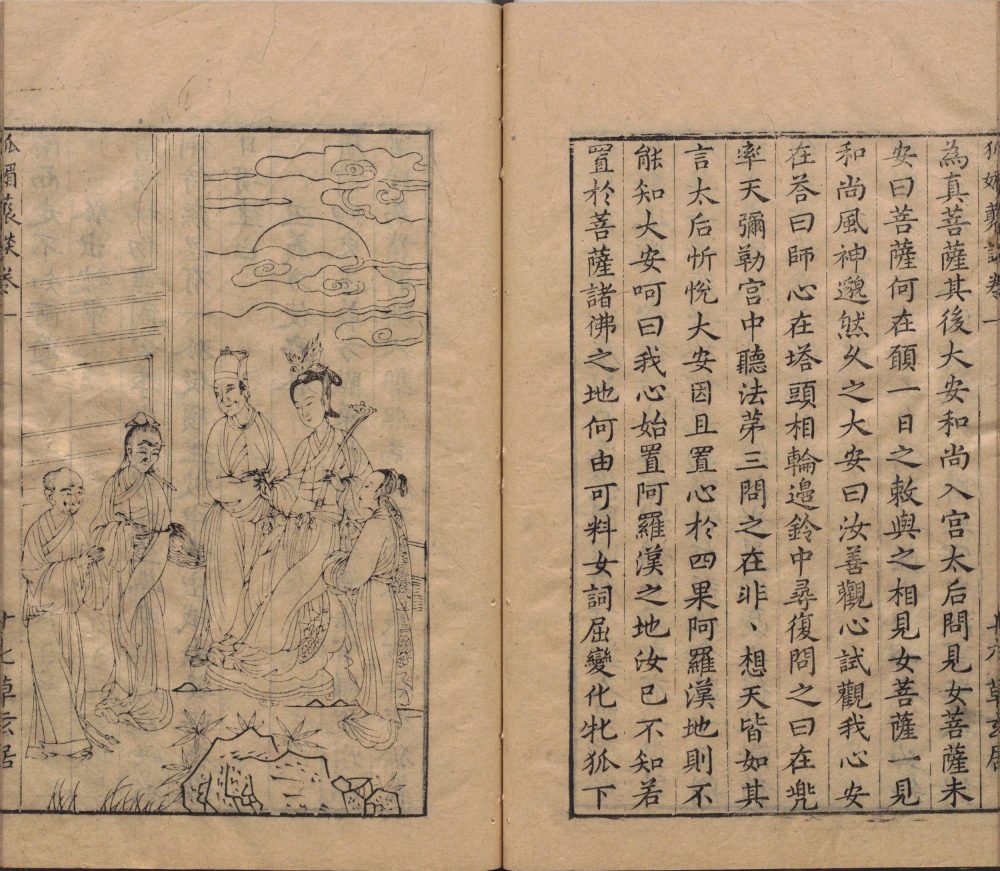 狐媚藂談卷一
十六草玄居
為真菩薩其後大安和尚入宮太后問見女菩薩未
安曰菩薩何在願一日之敕與之相見女菩薩一見
和尚風神邈然久之大安曰汝善觀心試觀我心安
在荅曰師心在塔頭相輪邊鈴中尋復問之曰在兠
率天彌勒宮中聽法苐三問之在非、想天皆如其
言太后忻悅大安因且置心於四果阿羅漢地則不
能知大安呵曰我心始置阿羅漢之地汝已不知若
置於菩薩諸佛之地何由可料女詞屈變化牝狐下
狐媚藂談卷一
十七草玄居